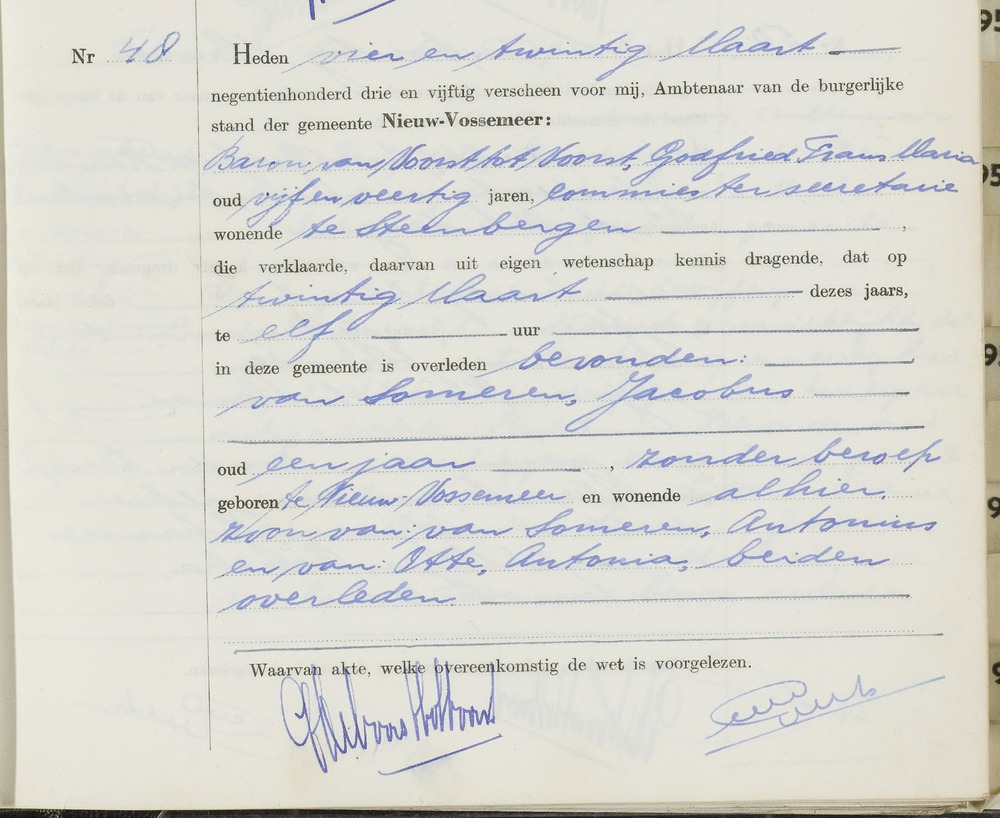 Nr 48 Heden vier en twintig Maart
negentienhonderd drie en vijftig verscheen voor mij, Ambtenaar van de burgerlijke
stand der gemeente Nieuw-Vossemeer:
Baron van Voorst tot Voorst, Godfried Frans Maria
oud vijf en veertig jaren, commies ter secretarie
wonende te Steenbergen ,
die verklaarde, daarvan uit eigen wetenschap kennis dragende, dat op
twintig Maart dezes jaars,
te elf uur
in deze gemeente is overleden bevonden:
van Someren, Jacobus
oud een jaar , zonder beroep
geboren te Nieuw-Vossemeer en wonende alhier,
zoon van: van Someren, Antonius
en van: Otte, Antonia, beiden
overleden.
Waarvan akte, welke overeenkomstig de wet is voorgelezen.